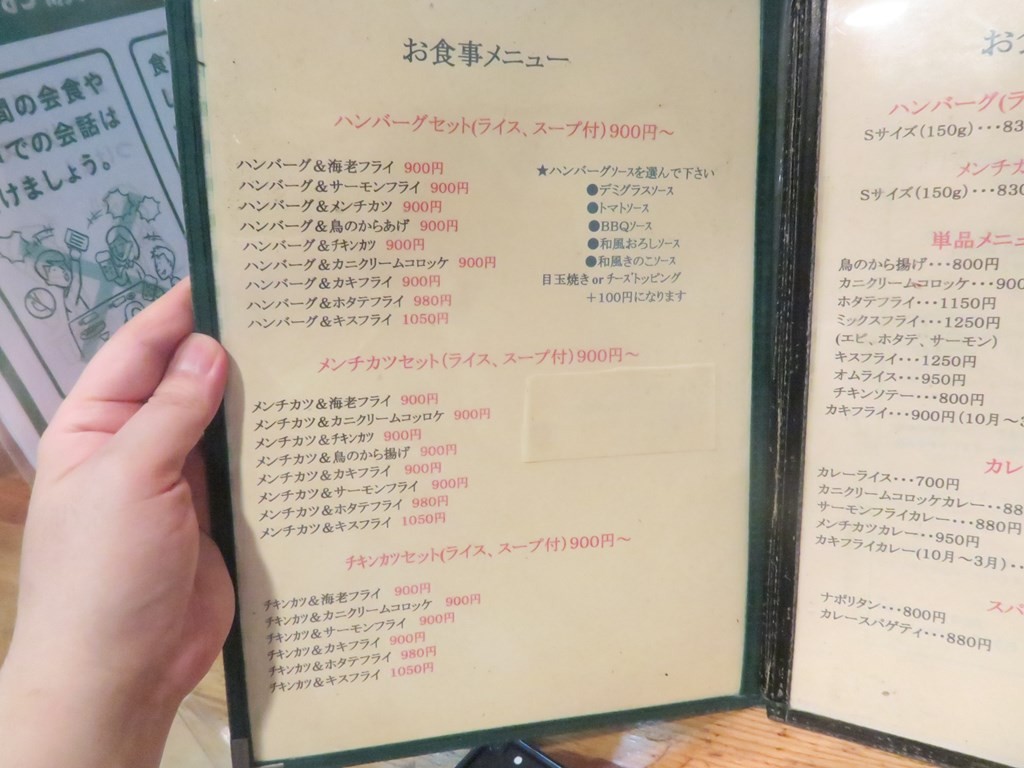 間の会食や
での会話は
けましょう。
食
お食事メニュー
ハンバーグセット(ライス、スープ付)900円～
ハンバーグ＆海老フライ 900円
ハンバーグ＆サーモンフライ 900円
ハンバーグ＆メンチカツ 900円
ハンバーグ＆鳥のからあげ 900円
ハンバーグ＆チキンカツ 900円
ハンバーグ＆カニクリームコロッケ 900円
ハンバーグ＆カキフライ 900円
ハンバーグ＆ホタテフライ 980円
ハンバーグ＆キスフライ 1050円
★ハンバーグソースを選んで下さい
●デミグラスソース
●トマトソース
●BBQソース
●和風おろしソース
●和風きのこソース
目玉焼き or チーズトッピング
＋100円になります
メンチカツセット(ライス、スープ付)900円～
メンチカツ＆海老フライ 900円
メンチカツ＆カニクリームコッロケ 900円
メンチカツ＆チキンカツ 900円
メンチカツ＆鳥のから揚げ 900円
メンチカツ＆カキフライ 900円
メンチカツ＆サーモンフライ 900円
メンチカツ＆ホタテフライ 980円
メンチカツ＆キスフライ 1050円
チキンカツセット(ライス、スープ付)900円～
チキンカツ＆海老フライ 900円
チキンカツ＆カニクリームコロッケ 900円
チキンカツ＆サーモンフライ 900円
チキンカツ＆カキフライ 900円
チキンカツ＆ホタテフライ 980円
チキンカツ＆キスフライ 1050円
お
ハンバーグ(ラ
Sサイズ(150g)・・・83
メンチカ
Sサイズ(150g)・・・830
単品メニュ
鳥のから揚げ・・・800円
カニクリームコロッケ・・・900
ホタテフライ・・・1150円
ミックスフライ・・・1250円
(エビ、ホタテ、サーモン)
キスフライ・・・1250円
オムライス・・・950円
チキンソテー・・・800円
カキフライ・・・900円(10月～3
カレ
カレーライス・・・700円
カニクリームコロッケカレー・・88
サーモンフライカレー・・・880円
メンチカツカレー・・950円
カキフライカレー(10月～3月)・・
スパ
ナポリタン・・・800円
カレースパゲティ・・・880円